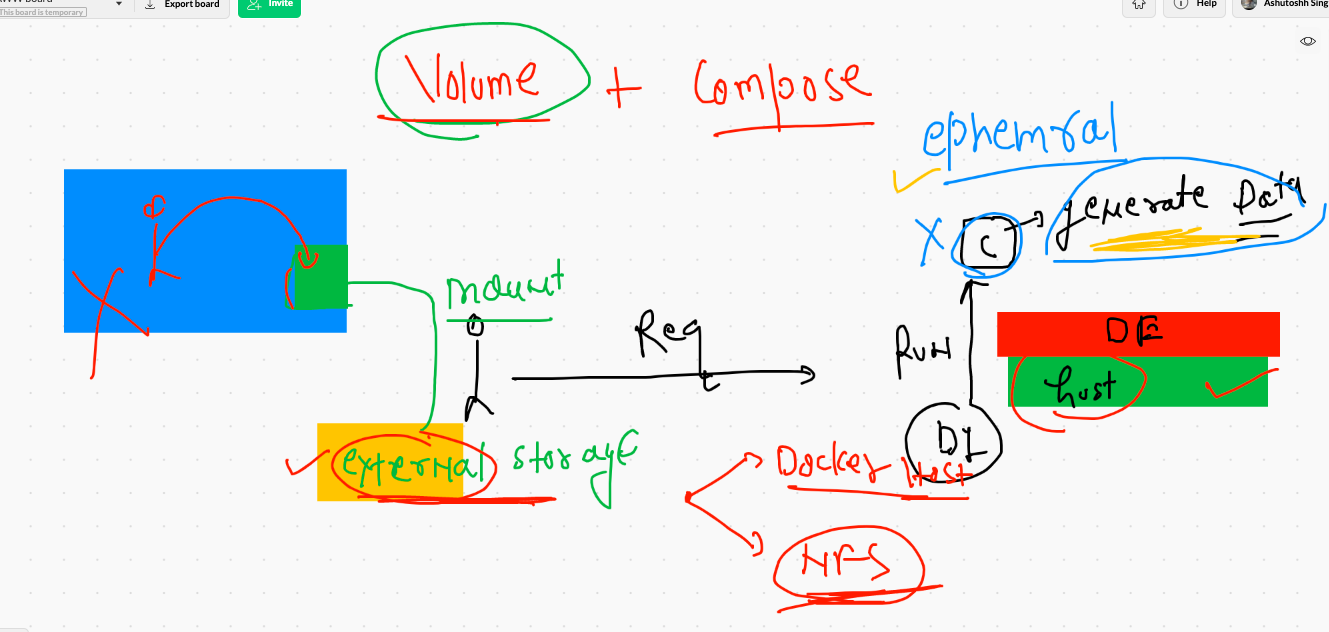 This board is temporary
Export board
Invite
Help
Ashutoshh Sing
Volume + Compose
ephemral
generate Data
C
mount
Req
Run
DE
host
DI
external storage
Docker Host
NFS